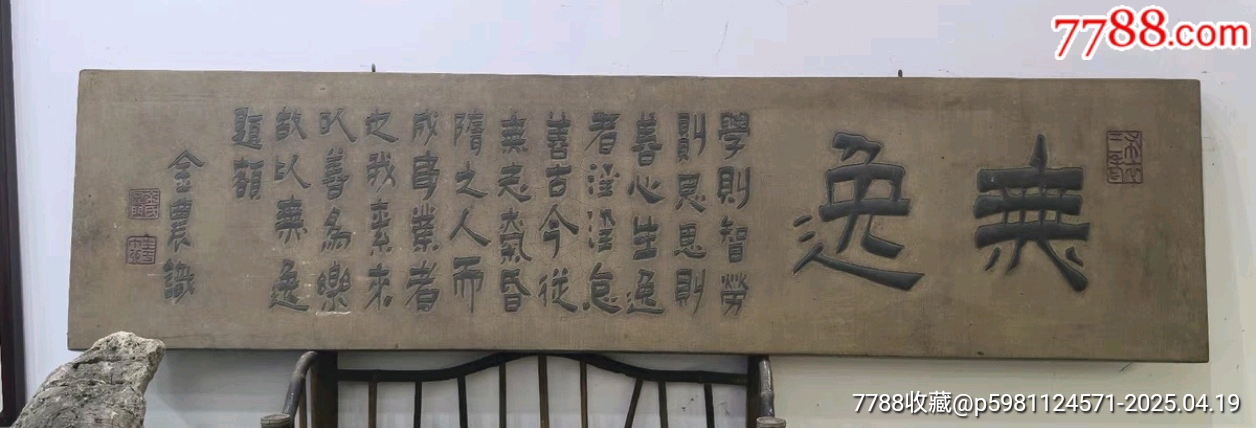 7788.com
無逸
學則智勞
則思思則
善心生逸
者淫淫怠
善古今從
無志氣昏
隋之人而
成事業者
也我素來
以善為樂
故以無逸
題額
金農識
7788收藏@p5981124571-2025.04.19